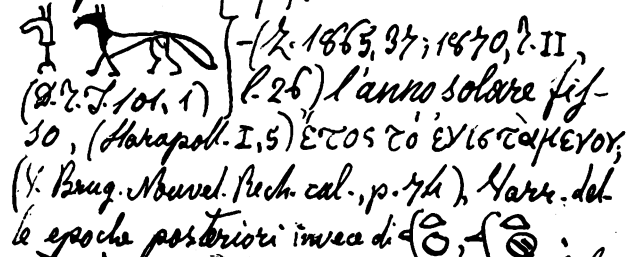 -(Z. 1865, 37; 1870, t. II,
(D. T. I. 101, 1) l. 26) l'anno solare fis-
so, (Horapoll. I, 5) ἔτος τό ἐνιστάμενον;
(V. Brug. Nouvel. Rech. cal., p. 74), Varr. del-
le epoche posteriori invece di